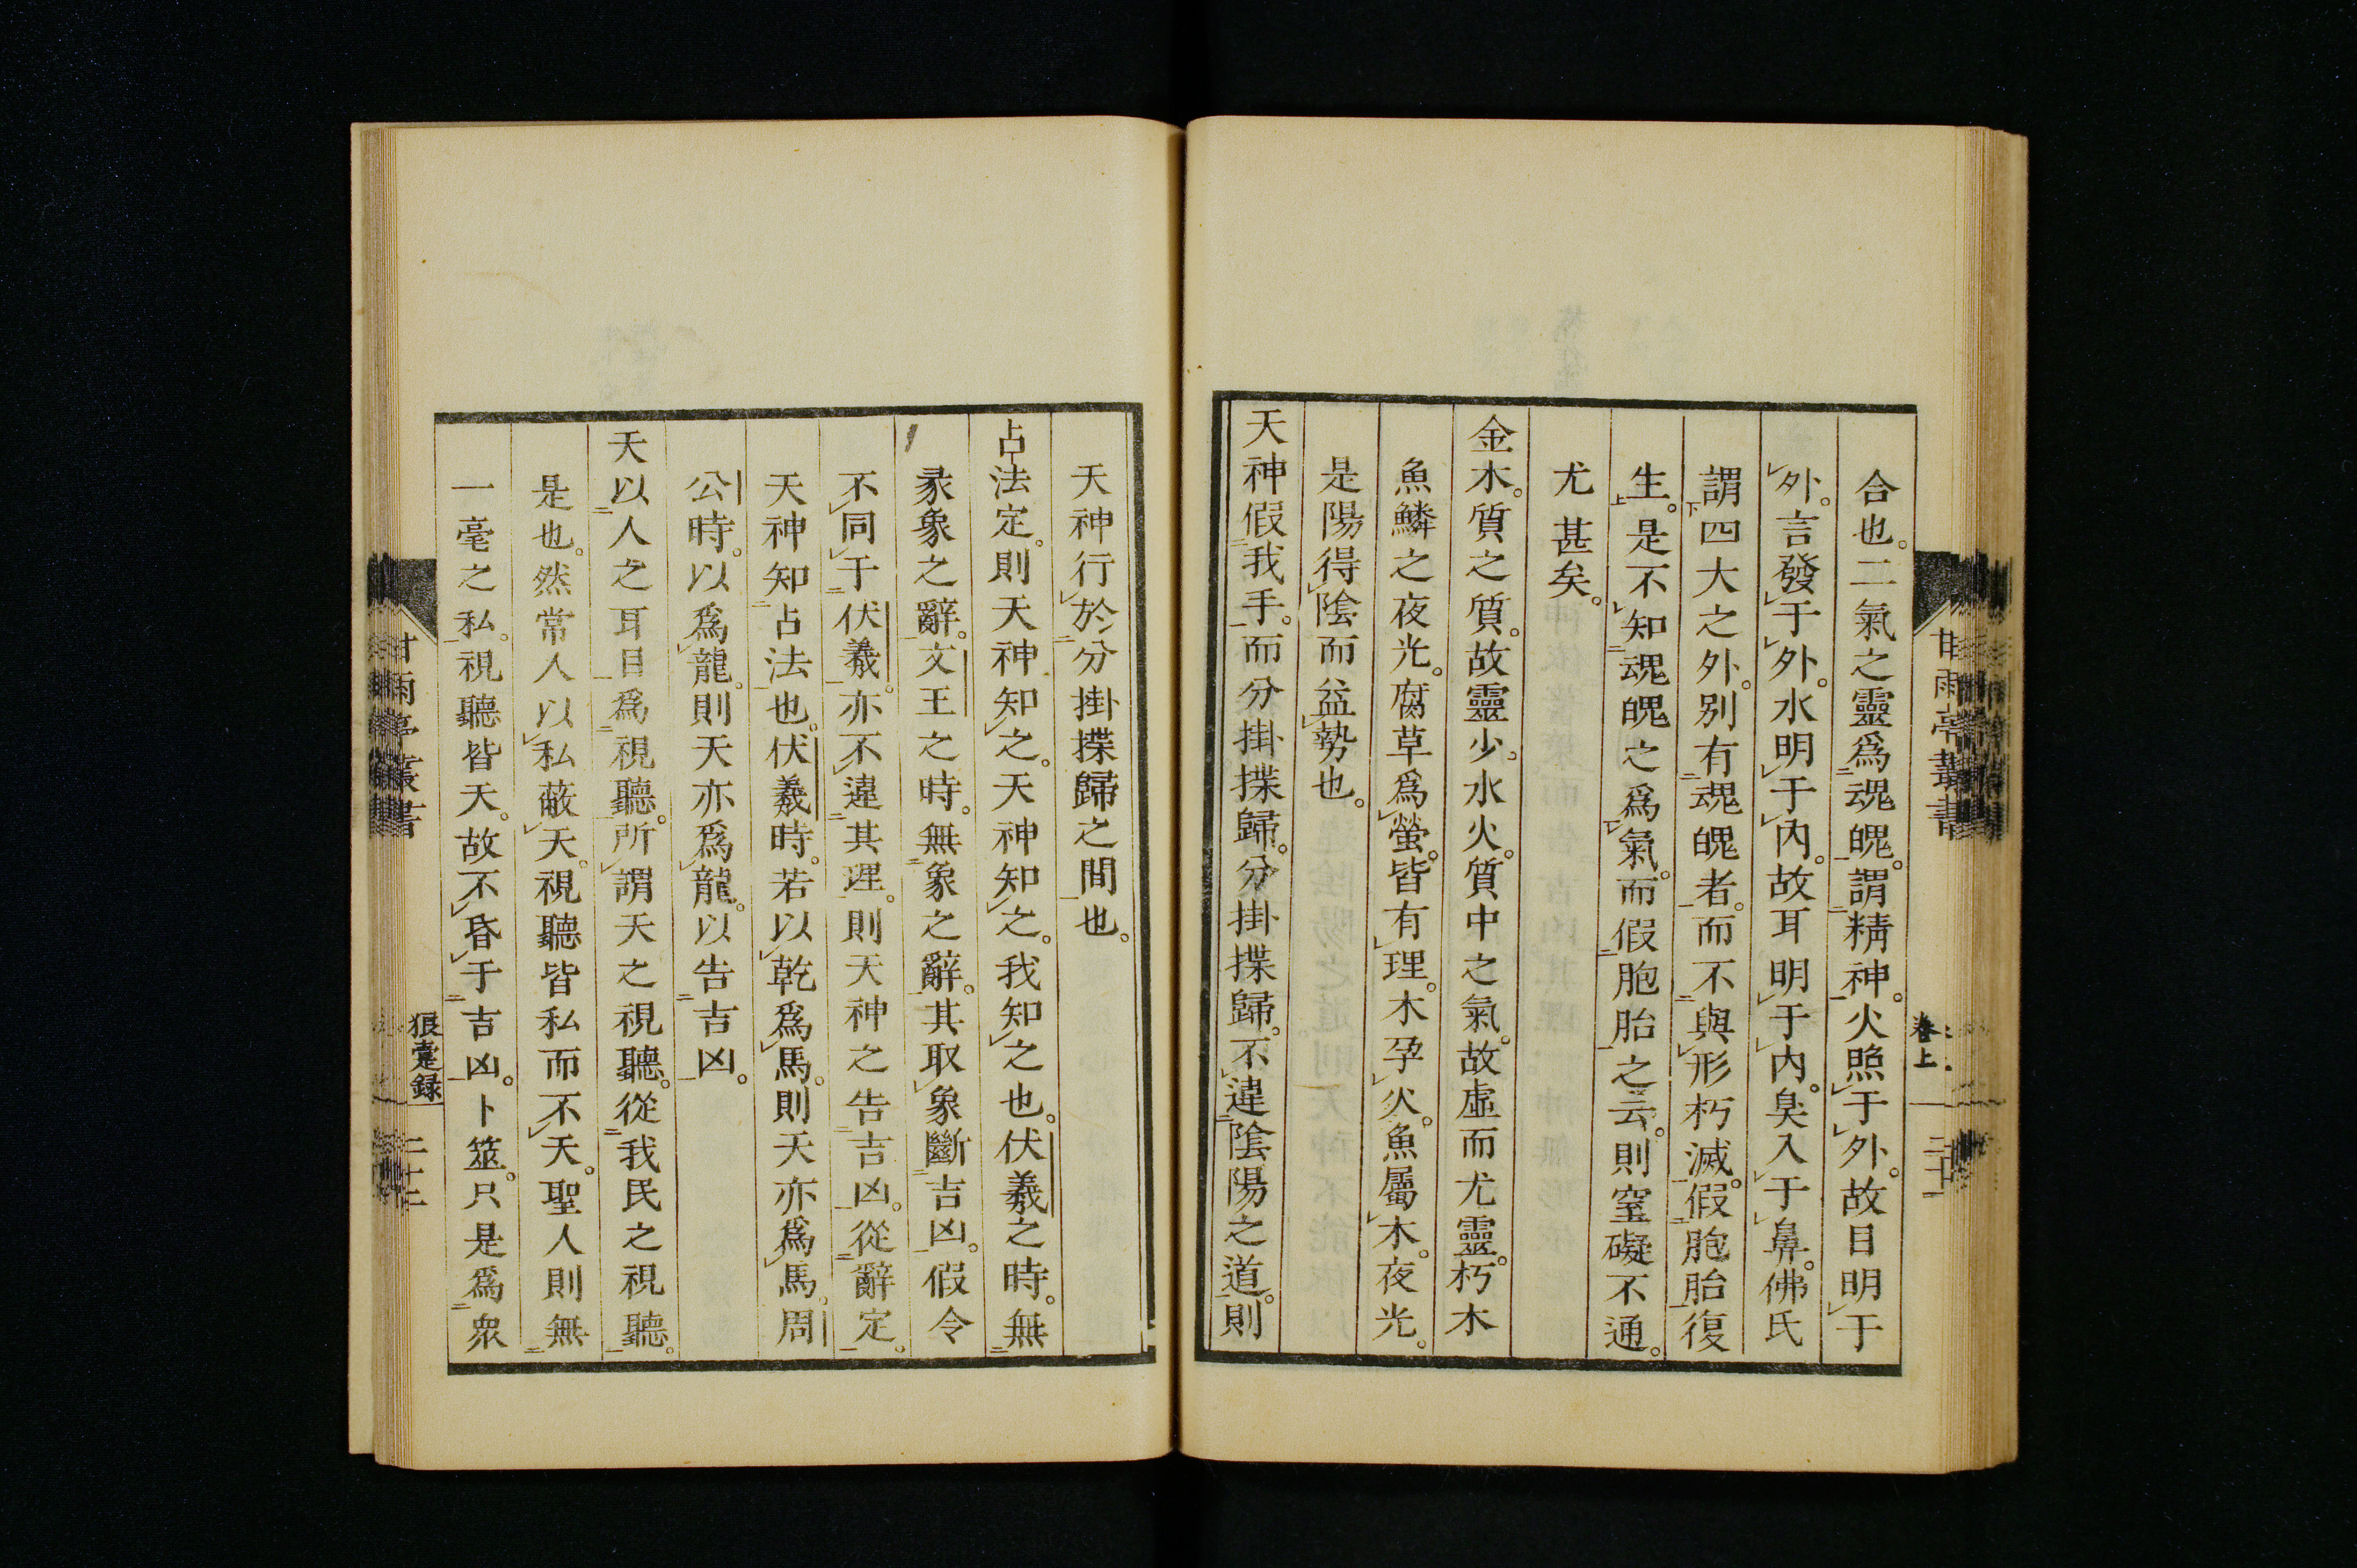 合也。二氣之靈爲魂魄。謂精神。火照于外。故目明于
外。言發于外。水明于內。故耳明于內。臭入于鼻。佛氏
謂四大之外。別有魂魄者。而不與形朽滅。假胞胎復
生。是不知魂魄之爲氣。而假胞胎之云。則窒礙不通。
尤甚矣。
金木。質之質。故靈少。水火。質中之氣。故虛而尤靈。朽木
魚鱗之夜光。腐草爲螢。皆有理。木孕火。魚屬木。夜光。
是陽得陰而益勢也。
天神假我手。而分掛揲歸。分掛揲歸。不違陰陽之道。則
甘雨亭叢書
卷上
天神行於分掛揲歸之間也。
占法定。則天神知之。天神知之。我知之也。伏羲之時。無
彖象之辭。文王之時。無象之辭。其取象斷吉凶。假令
不同于伏羲。亦不違其理。則天神之告吉凶。從辭定。
天神知占法也。伏羲時。若以乾爲馬。則天亦爲馬。周
公時。以爲龍。則天亦爲龍。以告吉凶。
天以人之耳目爲視聽。所謂天之視聽。從我民之視聽。
是也。然常人以私蔽天。視聽皆私而不天。聖人則無
一毫之私。視聽皆天。故不昏于吉凶。卜筮。只是爲衆
甘雨亭叢書
狼疐録
二十二